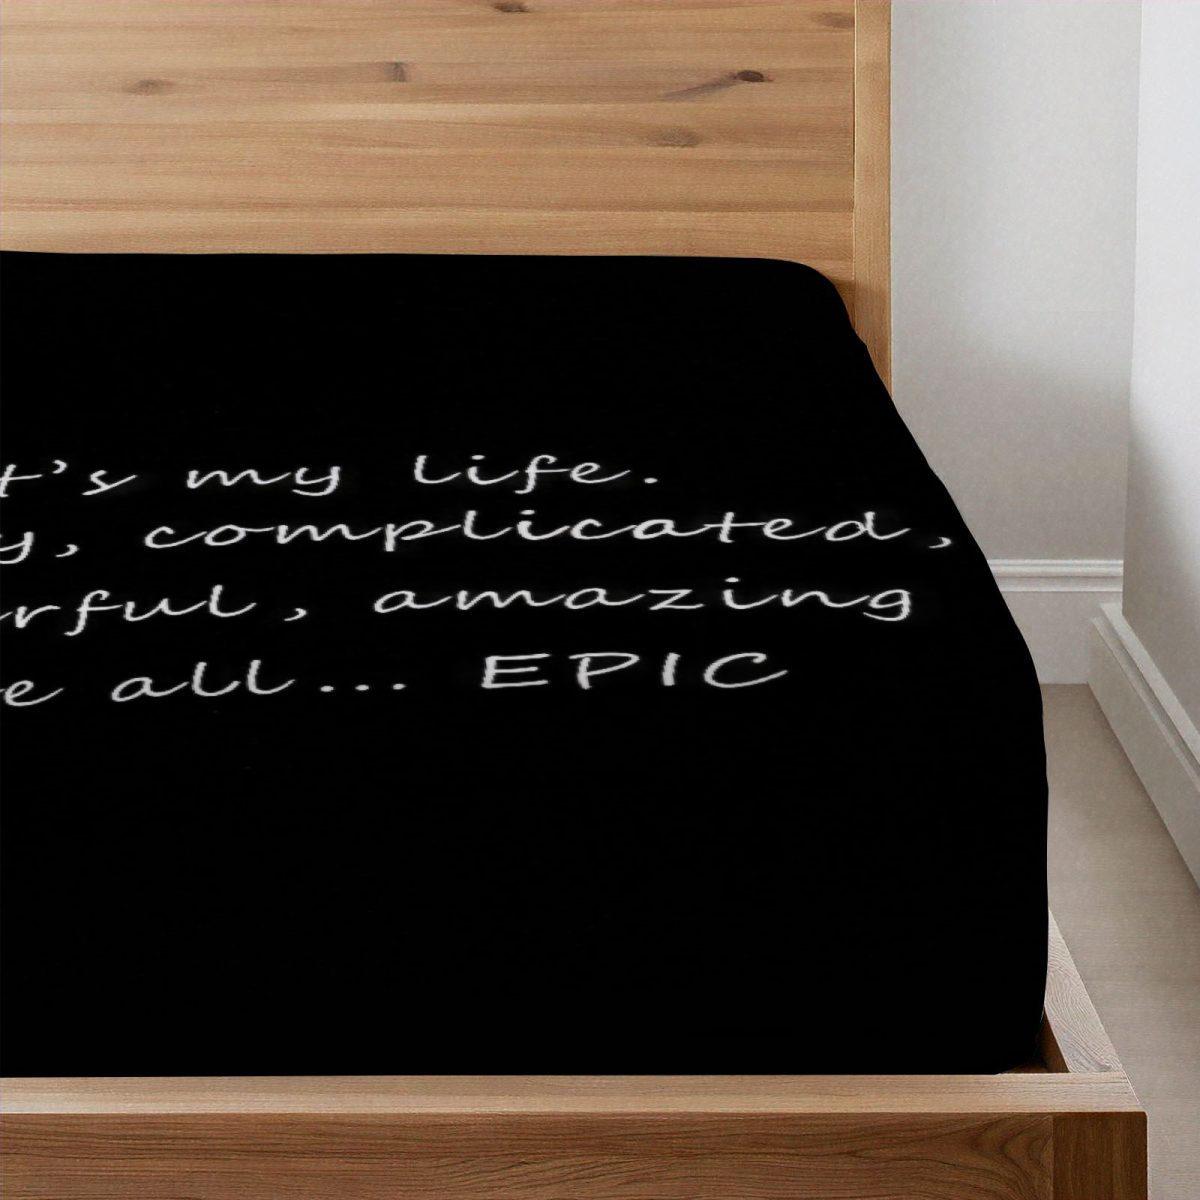 t's my life.
y, complicated,
rful, amazing
e all... EPIC